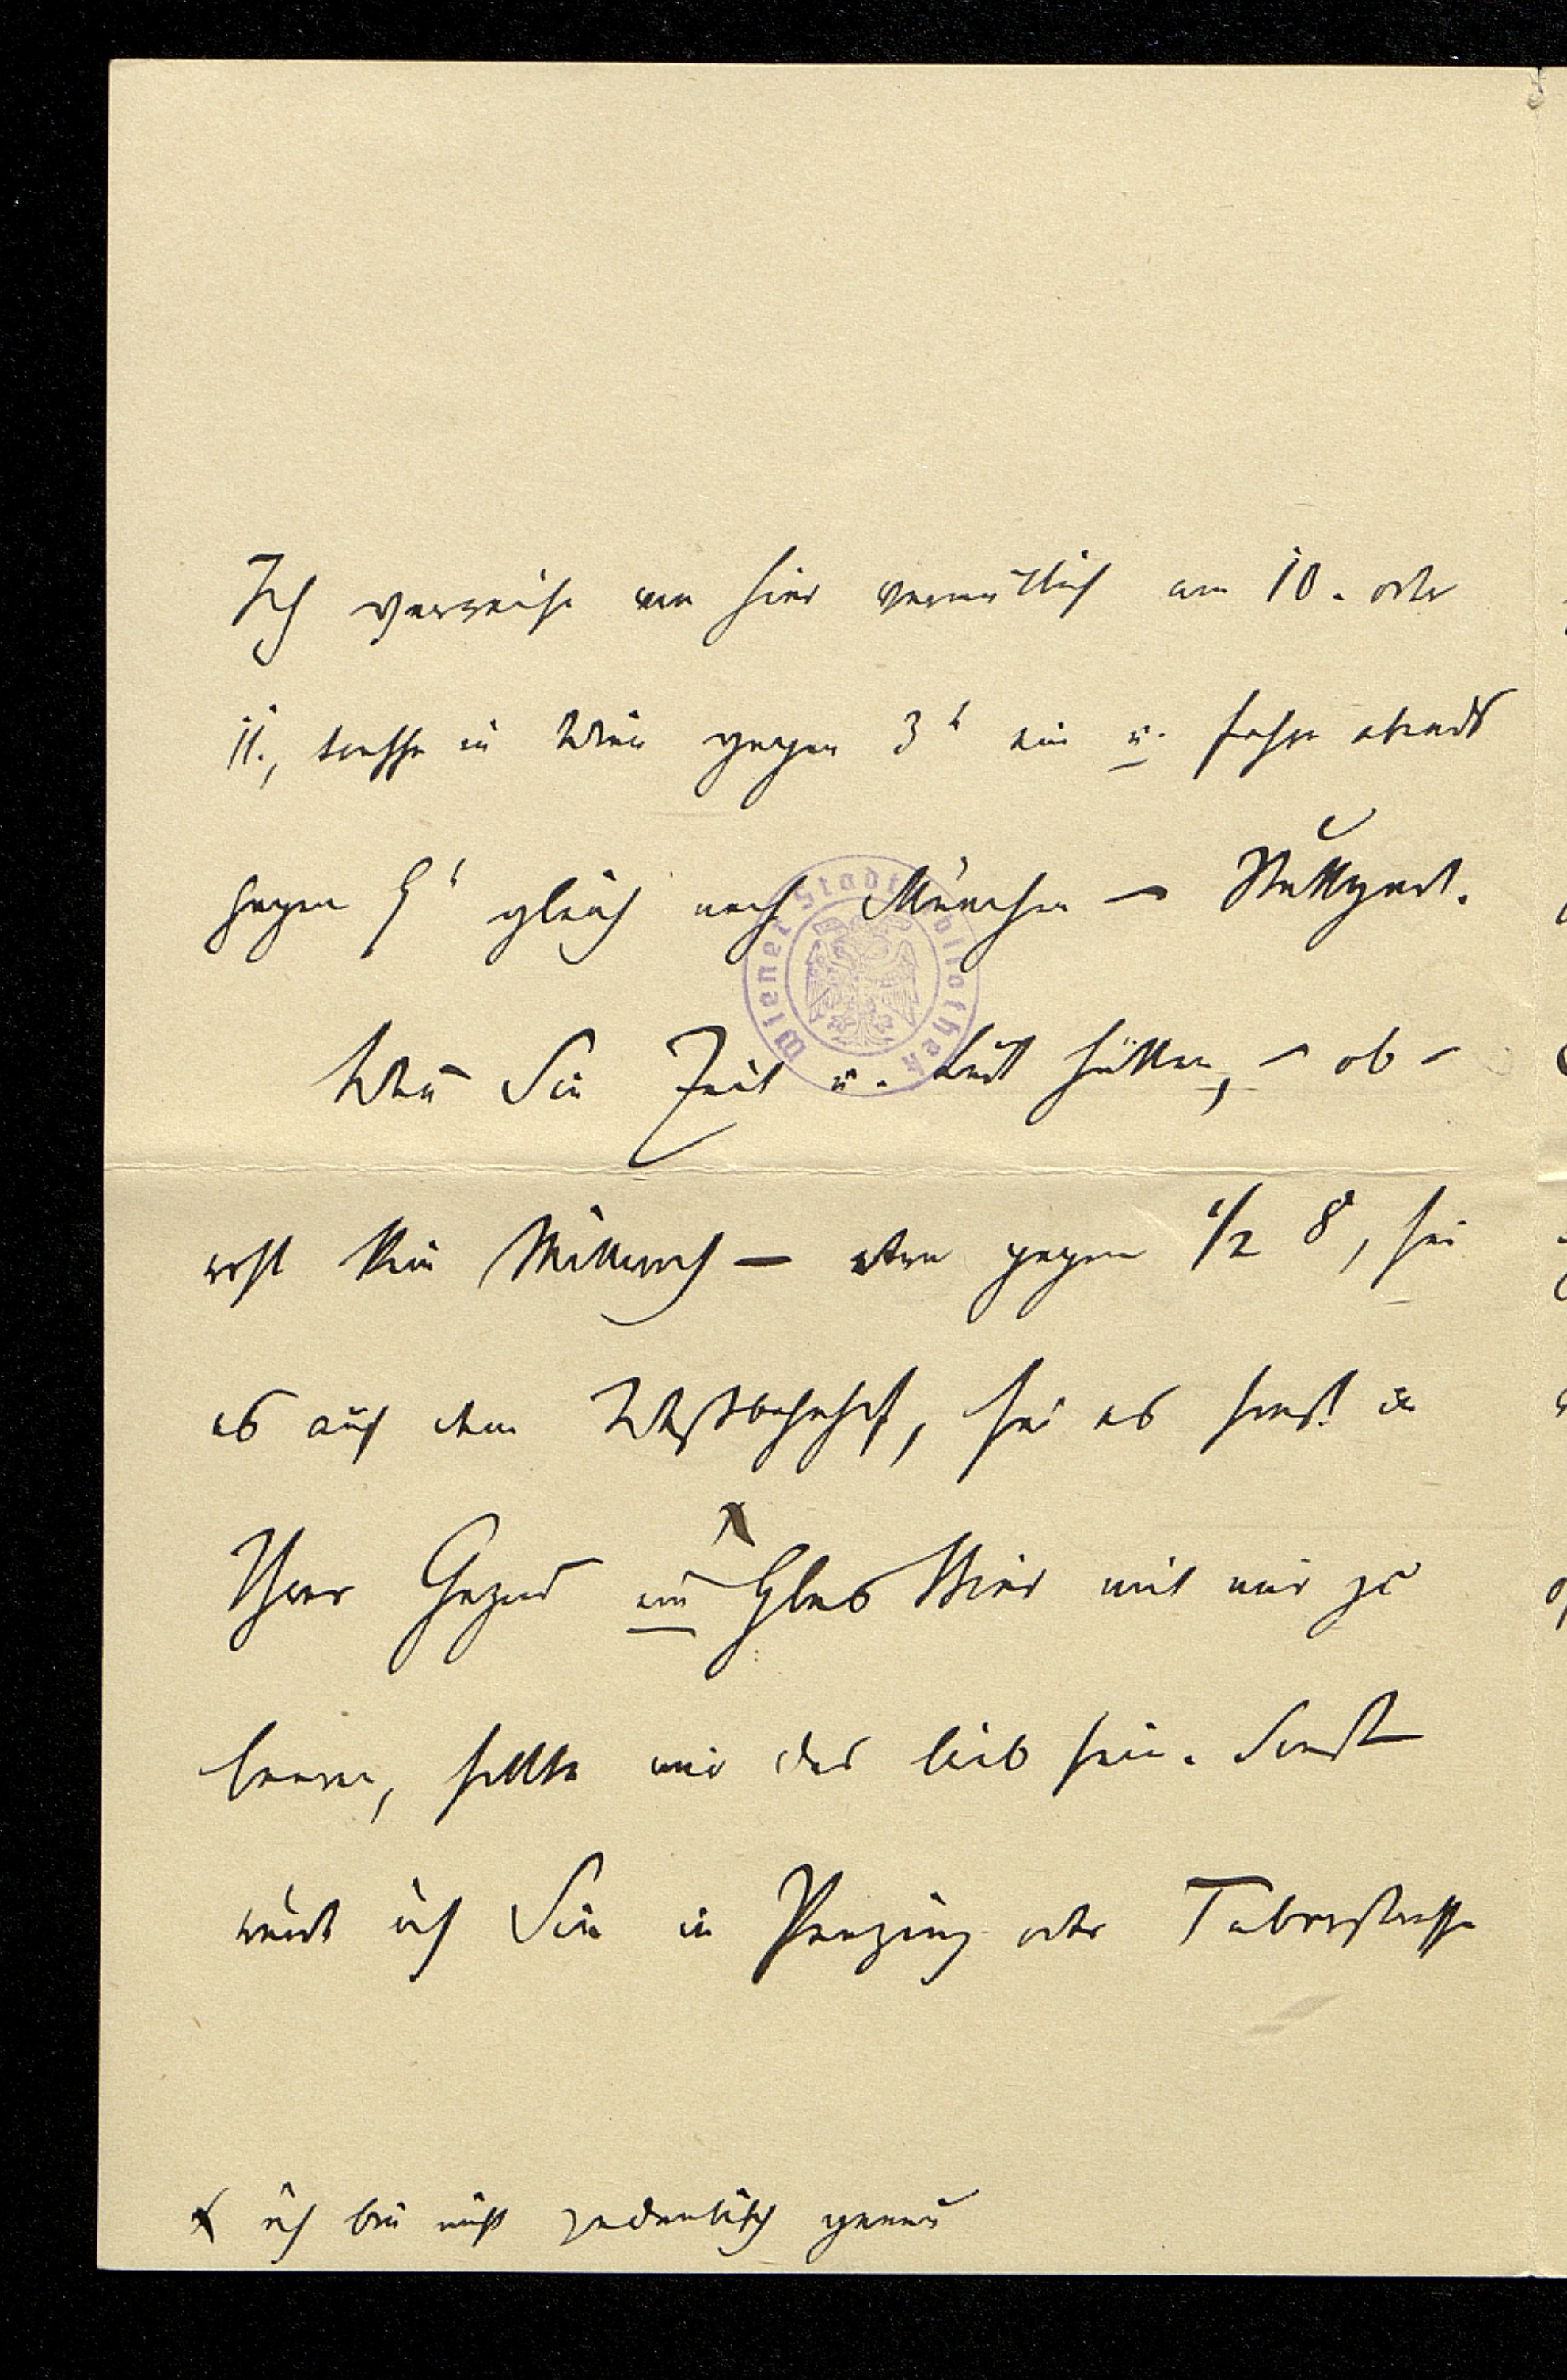 Ich verreise von hier vermutlich am 10. oder
11., treffe in Wien gegen 3h ein u. fahre abends
gegen 9h gleich nach München – Stuttgart.
Wiener Stadtbibliothek
Wen̄ Sie Zeit u. Lust hätten, – ob –
wohl kein Mittwoch – etwa gegen 1/2 8, sei
es auf dem Westbahnhof, sei es sonst in
Ihrer Gegend ein x Glas Bier mit mir zu
leeren, sollte mir das lieb sein. Sonst
würde ich Sie in Penzing oder Taborstrasse
x ich bin nicht pedantisch genau